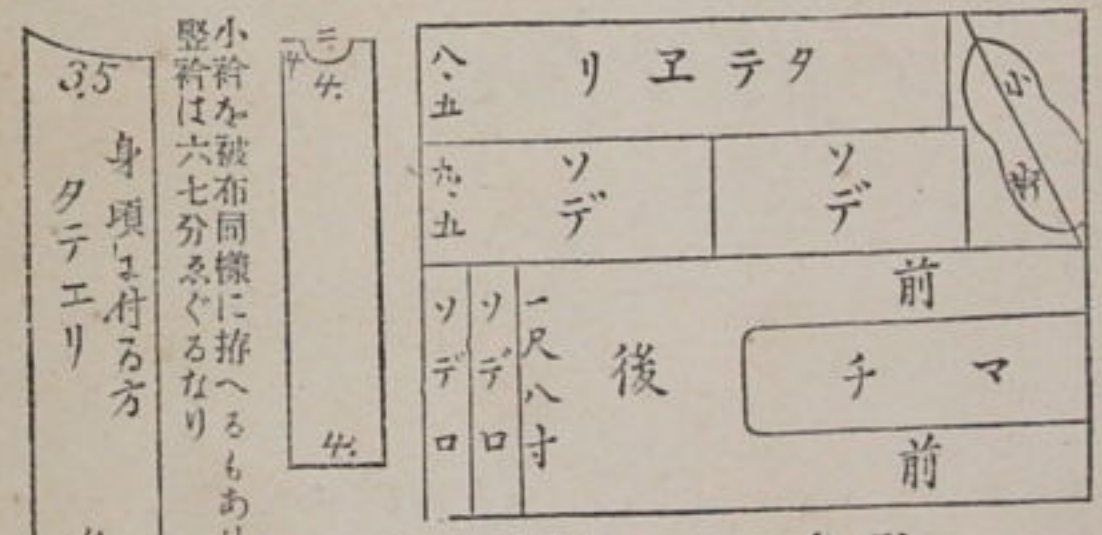 タテヱリ
八・五
小
ソデ
ソデ
六・五
前
マチ
前
後
一尺八寸
ソデ口
ソデ口
二
4
4.
4.
小衿を被布同様に拵へるもあり
竪衿は六七分ゑぐるなり
3.5
身頃に付る方
タテエリ